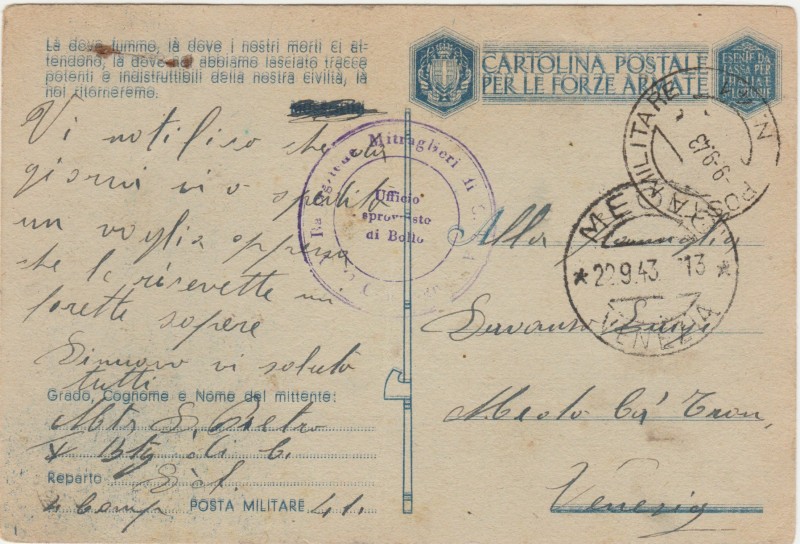 Là dove fummo, là dove i nostri morti ci at-
tendono, là dove noi abbiamo lasciato tracce
potenti e indistruttibili della nostra civiltà, là
noi ritorneremo.
CARTOLINA POSTALE
PER LE FORZE ARMATE
ESENTE DA
TASSA PER
L'ITALIA E
COLONIE
POSTA MILITARE N.
9-9-43
Mitraglieri di
Ufficio
sprovvisto
di Bollo
MEOLO
* 22.9.43 13 *
VENEZIA
Vi notifico che
giorni vi o spedito
un vaglia appena
che la ricevette mi
farette sapere
Dinuovo vi saluto
tutti
Alla Famiglia
Luigi
Meolo Ca' Tron,
Venezia
Grado, Cognome e Nome del mittente:
Mtr S. Pietro
V Btg
Reparto
4 Comp POSTA MILITARE 41.